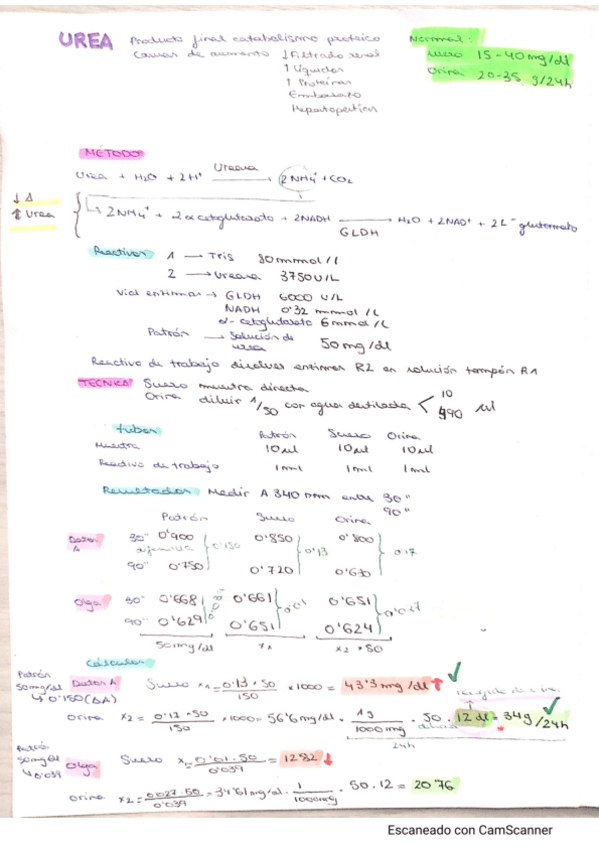 UREA Producto final catabolismo proteico
Causas de aumento ↓ Filtrado renal
↑ Líquidos
↑ Proteínas
Embarazo
Hepatopatías
Normal:
suero 15-40 mg/dl
Orina 20-35 g/24h
MÉTODO
Urea + H2O + 2H+ Ureasa → 2NH4+ + CO2
↓ Δ
↑ Urea
2NH4+ + 2α cetoglutarato + 2NADH → GLDH H2O + 2NAD+ + 2L- glutamato
Reactivos 1 → Tris 80 mmol/l
2 → Ureasa 3750 U/L
Vial enzimas → GLDH 6000 U/L
NADH 0'32 mmol/L
α- cetoglutarato 6 mmol/L
Patrón → Solución de urea 50 mg/dl
Reactivo de trabajo disolver enzimas R2 en solución tampón R1
TECNICA Suero muestra directa
Orina diluir 1/50 con agua destilada < 10
490 µl
tubos
Patrón Suero Orina
Muestra 10µl 10µl 10µl
Reactivo de trabajo 1ml 1ml 1ml
Resultados Medir A 340 nm entre 30"
90"
Patrón Suero Orina
Datos A 30" 0'900 0'150 0'850 0'13 0'800 0'17
90" 0'750 0'720 0'630
Olga 30" 0'668 0'661 0'01 0'651 0'027
90" 0'629 0'651 0'624
50mg/dl x1 x2 · 50
Cálculos
Patrón 50mg/dl ↳ 0'150 (ΔA)
Datos A Suero x1 = 0'13 · 50 / 150 × 1000 = 43'3 mg/dl ↑ ✓
Orina x2 = 0'17 · 50 / 150 × 1000 = 56'6 mg/dl · 1g / 1000mg · 50 · 12 dl = 34g/24h ✓
24h
Patrón 50mg/dl ↳ 0'039
Olga Suero x1 = 0'01 · 50 / 0'039 = 12'82 ↓
Orina x2 = 0'027 · 50 / 0'039 = 34'61 mg/dl · 1 / 1000mg · 50 · 12 = 20'76
Escaneado con CamScanner